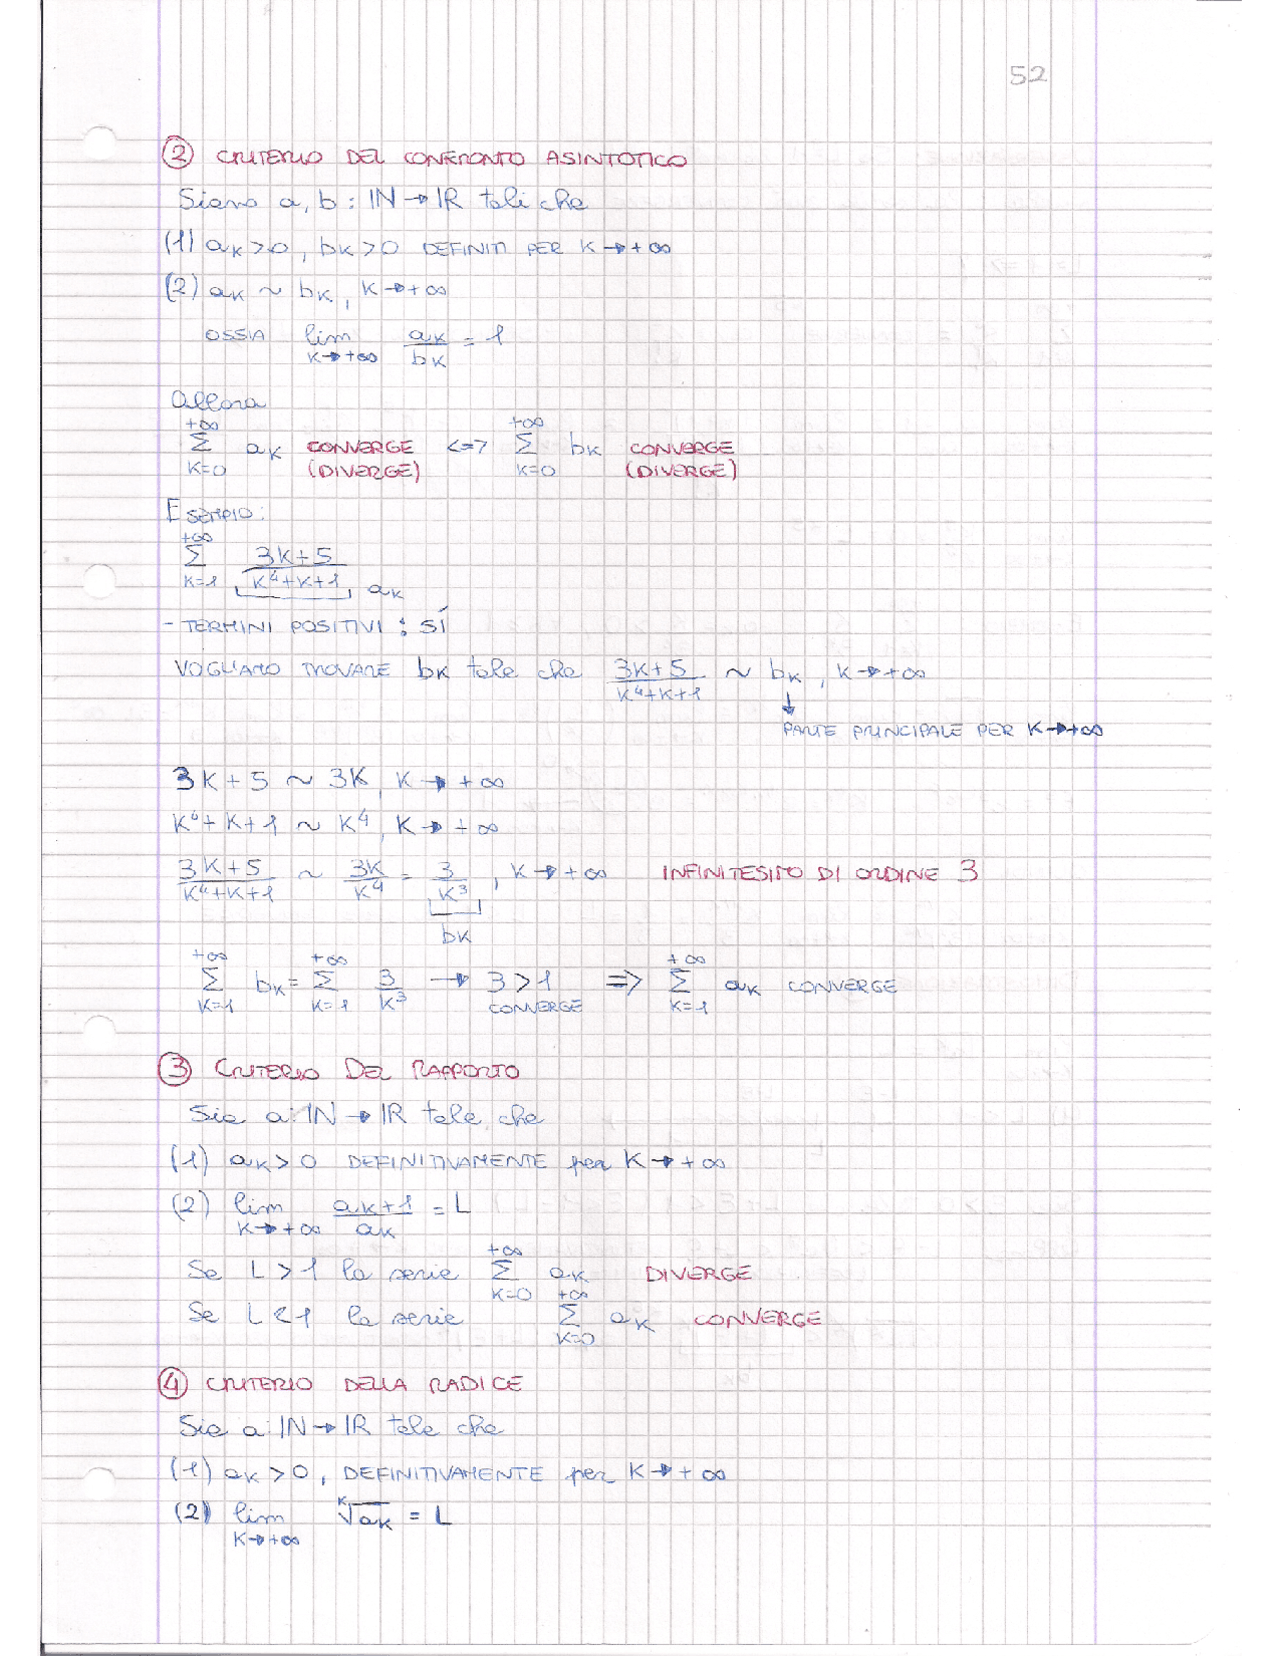 52
② CRITERIO DEL CONFRONTO ASINTOTICO
Siano a, b : ℕ → ℝ tali che
(1) aₖ > 0, bₖ > 0 DEFINITI PER K → +∞
(2) aₖ ~ bₖ, K → +∞
OSSIA lim_{K→+∞} aₖ/bₖ = 1
Allora
∑_{K=0}^{+∞} aₖ CONVERGE (DIVERGE) <=> ∑_{K=0}^{+∞} bₖ CONVERGE (DIVERGE)
ESEMPIO:
∑_{K=1}^{+∞} (3K+5)/(K⁴+K+1) aₖ
- TERMINI POSITIVI : SÍ
VOGLIAMO TROVARE bₖ tale che (3K+5)/(K⁴+K+1) ~ bₖ, K → +∞
↓
PARTE PRINCIPALE PER K → +∞
3K+5 ~ 3K, K → +∞
K⁴+K+1 ~ K⁴, K → +∞
(3K+5)/(K⁴+K+1) ~ 3K/K⁴ = 3/K³, K → +∞ INFINITESIMO DI ORDINE 3
bₖ
∑_{K=1}^{+∞} bₖ = ∑_{K=1}^{+∞} 3/K³ → 3 > 1 CONVERGE => ∑_{K=1}^{+∞} aₖ CONVERGE
③ CRITERIO DEL RAPPORTO
Sia a: ℕ → ℝ tale che
(1) aₖ > 0 DEFINITIVAMENTE per K → +∞
(2) lim_{K→+∞} aₖ₊₁/aₖ = L
Se L > 1 la serie ∑_{K=0}^{+∞} aₖ DIVERGE
Se L < 1 la serie ∑_{K=0}^{+∞} aₖ CONVERGE
④ CRITERIO DELLA RADICE
Sia a: ℕ → ℝ tale che
(1) aₖ > 0, DEFINITIVAMENTE per K → +∞
(2) lim_{K→+∞} ᴷ√aₖ = L